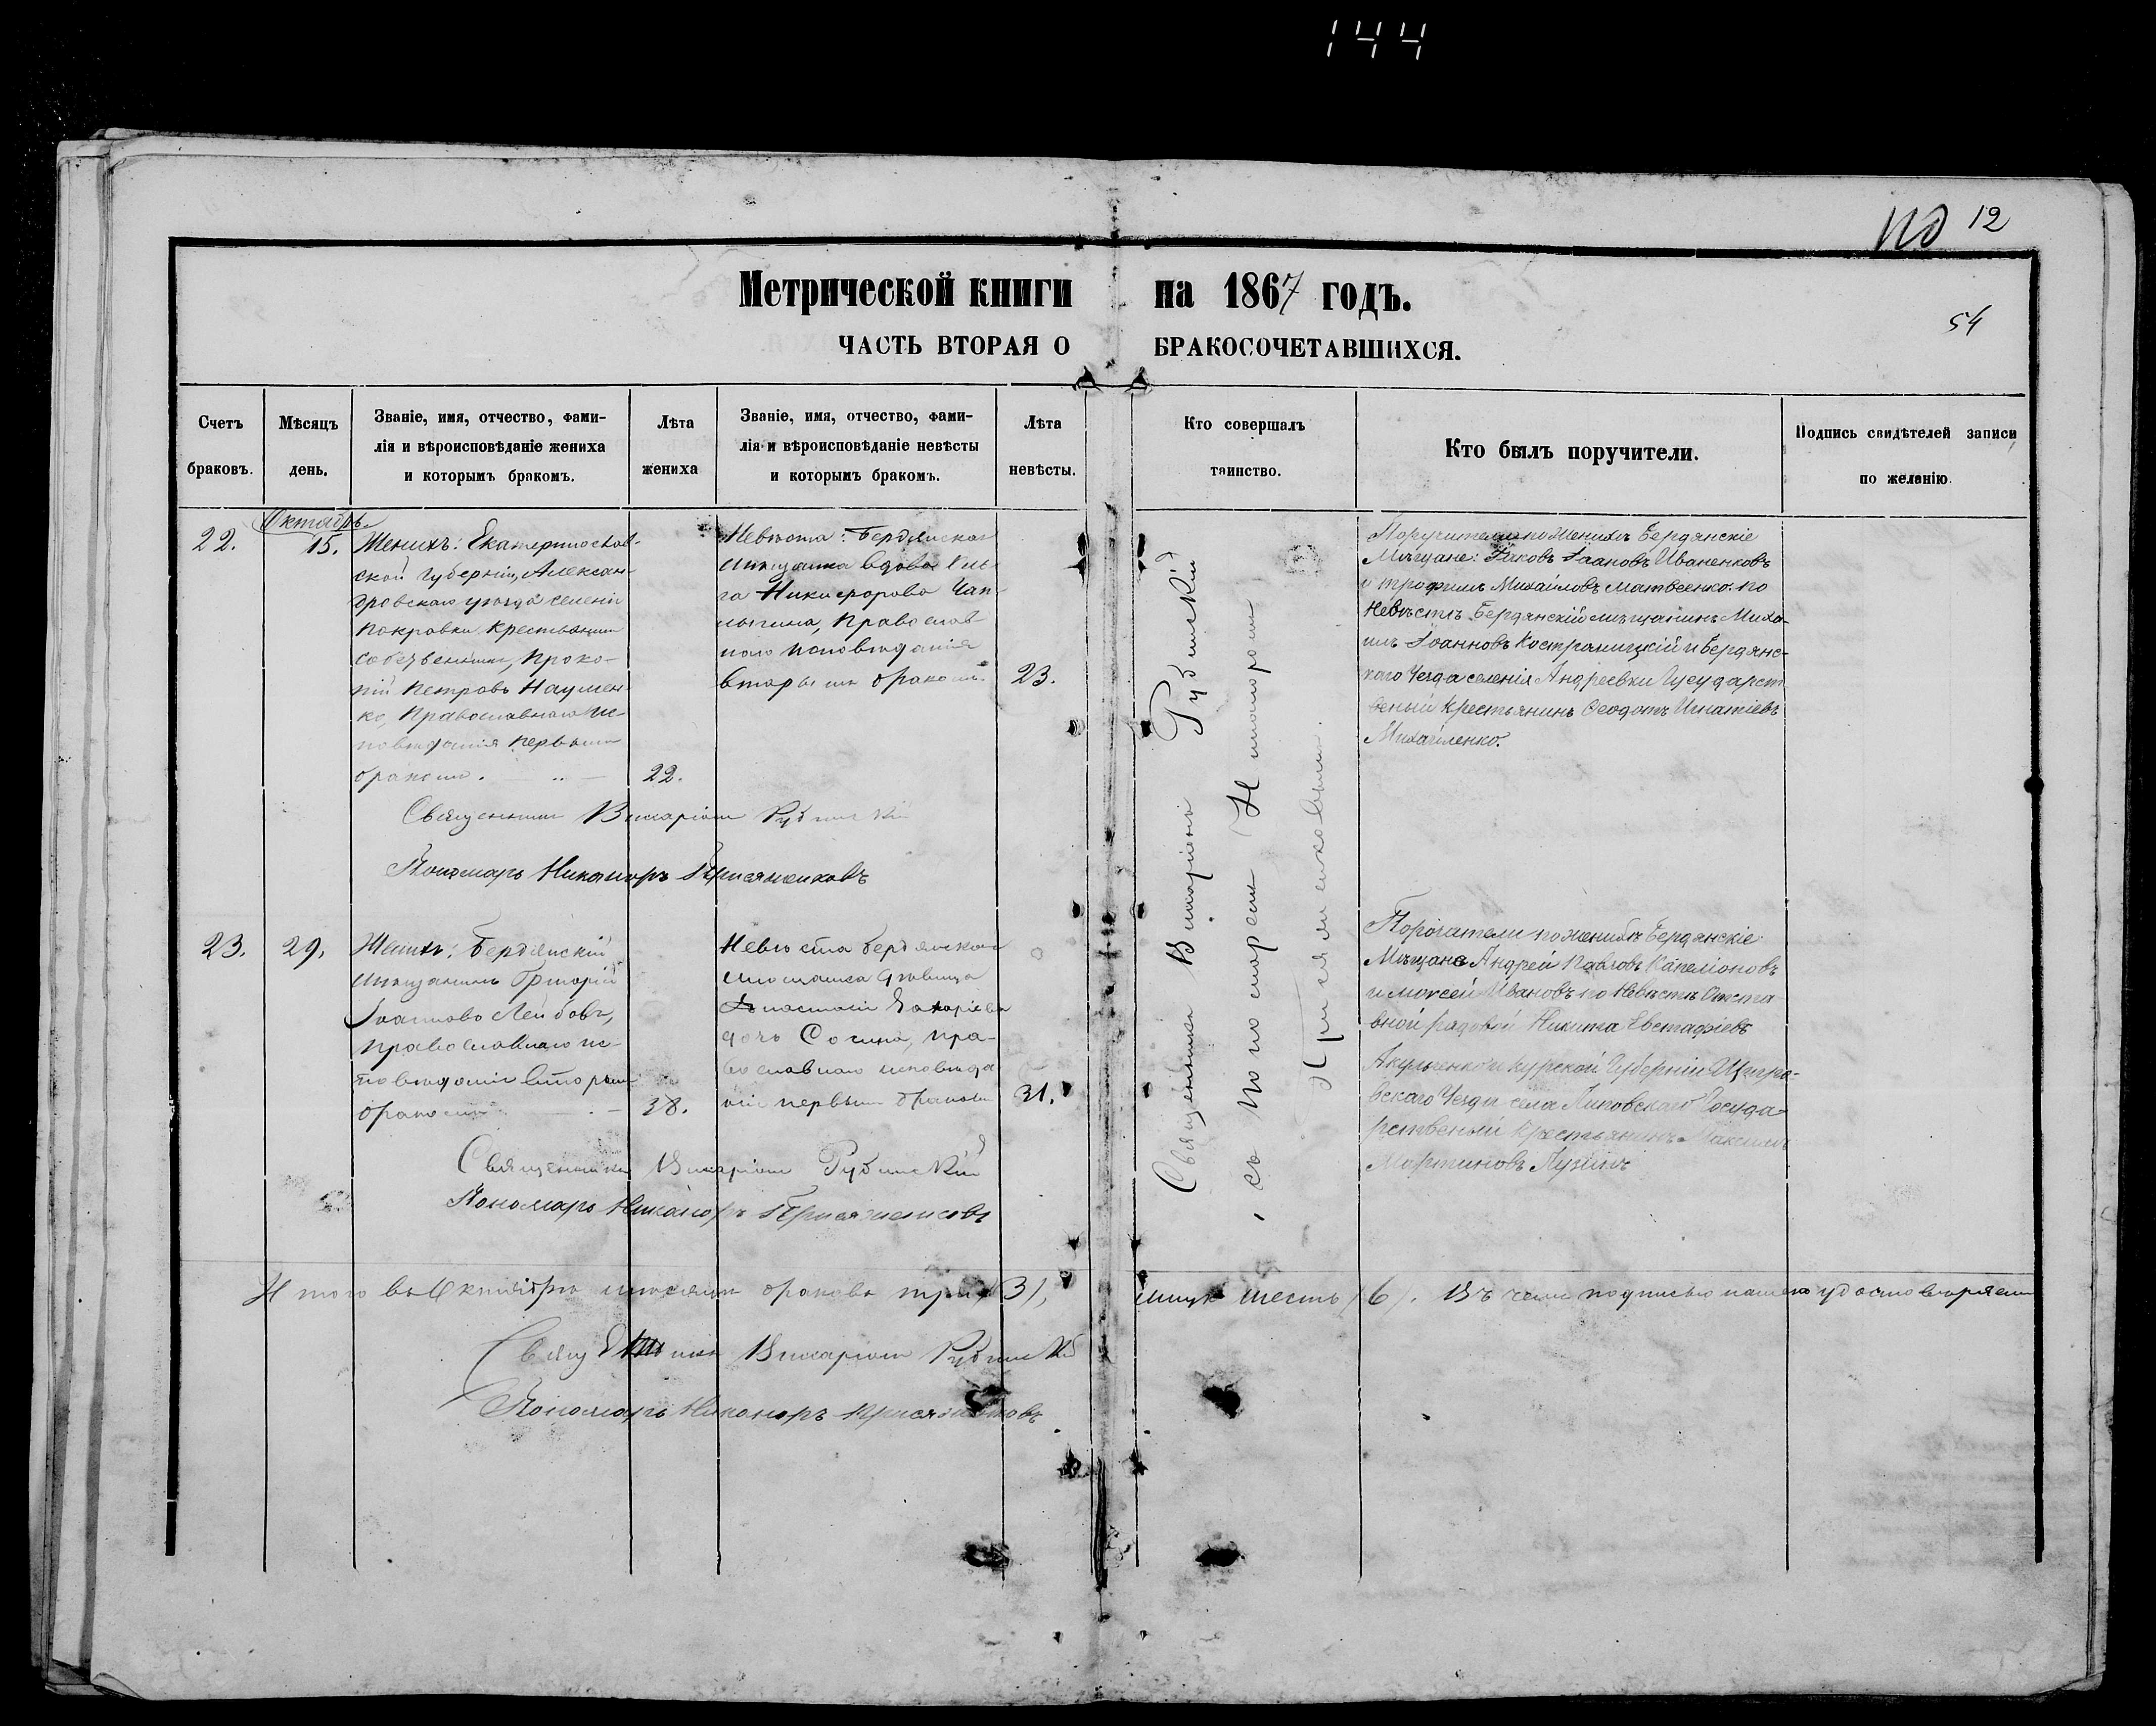 144
по 12
Метрической книги на 1867 годъ.
54
ЧАСТЬ ВТОРАЯ О БРАКОСОЧЕТАВШИХСЯ.
Счетъ
браковъ.
Мѣсяцъ
день.
Званіе, имя, отчество, фами-
лія и вѣроисповѣданіе жениха
и которымъ бракомъ.
Лѣта
жениха
Званіе, имя, отчество, фами-
лія и вѣроисповѣданіе невѣсты
и которымъ бракомъ.
Лѣта
невѣсты.
Кто совершалъ
таинство.
Кто былъ поручители.
Подпись свидѣтелей записи
по желанію.
Октябрь
22.
15.
Женихъ: Екатеринослав-
ской губерніи, Алексан-
дровскаго уѣзда селенія
Покровки крестьянинъ
собственникъ, Проко-
пій Петровъ Наумен-
ко, Православнаго ис-
повѣданія первымъ
бракомъ.
22.
Невѣста: Бердянская
мѣщанка вдова
Никифорова
Православ-
наго исповѣданія
вторымъ бракомъ.
23.
Священникъ Виссаріонъ Рубинскій
съ пономаремъ Никаноромъ
Присяжниковымъ.
Поручители по женихѣ Бердянскіе
Мѣщане: Яковъ Іоановъ Иваненковъ
и Трофимъ Михайловъ Матвеенко. по
Невѣстѣ Бердянскій мѣщанинъ Миха-
илъ Іоанновъ Костраницкій и Бердянс-
каго Уезда селенія Андреевки Гусударст
веный крестьянинъ Феодотъ Игнатіевъ
Михайленко.
Священникъ Виссаріонъ Рубинскій
Пономарь Никаноръ Присяжниковъ
23.
29.
Женихъ: Бердянскій
мѣщанинъ Григорій
Іоанновъ
православнаго ис-
повѣданія вторымъ
бракомъ
38.
Невѣста бердянская
мѣщанка дѣвица
Анастасія Захаріева
дочь Сосина, пра-
вославнаго исповѣда
нія первымъ бракомъ
31.
Порочатели по женихѣ Бердянскіе
Мѣщане Андрей Павловъ Капеліоновъ
и Моксей Ивановъ по Невѣстѣ Отста
вной рядовой Никита Евстафіевъ
и Курской Губерніи Щигро-
вскаго Уезда села Липовскаго Госуда-
рственый Крестьянинъ Максимъ
Мартиновъ
Священникъ Виссаріонъ Рубинскій
Пономарь Никаноръ Присяжниковъ
Итого въ Октябрѣ мѣсяцѣ браковъ три (3), лицъ шесть (6). Въ чемъ подписью нашею удостовѣряемъ
Священникъ Виссаріонъ Рубинскій
Пономарь Никаноръ Присяжниковъ